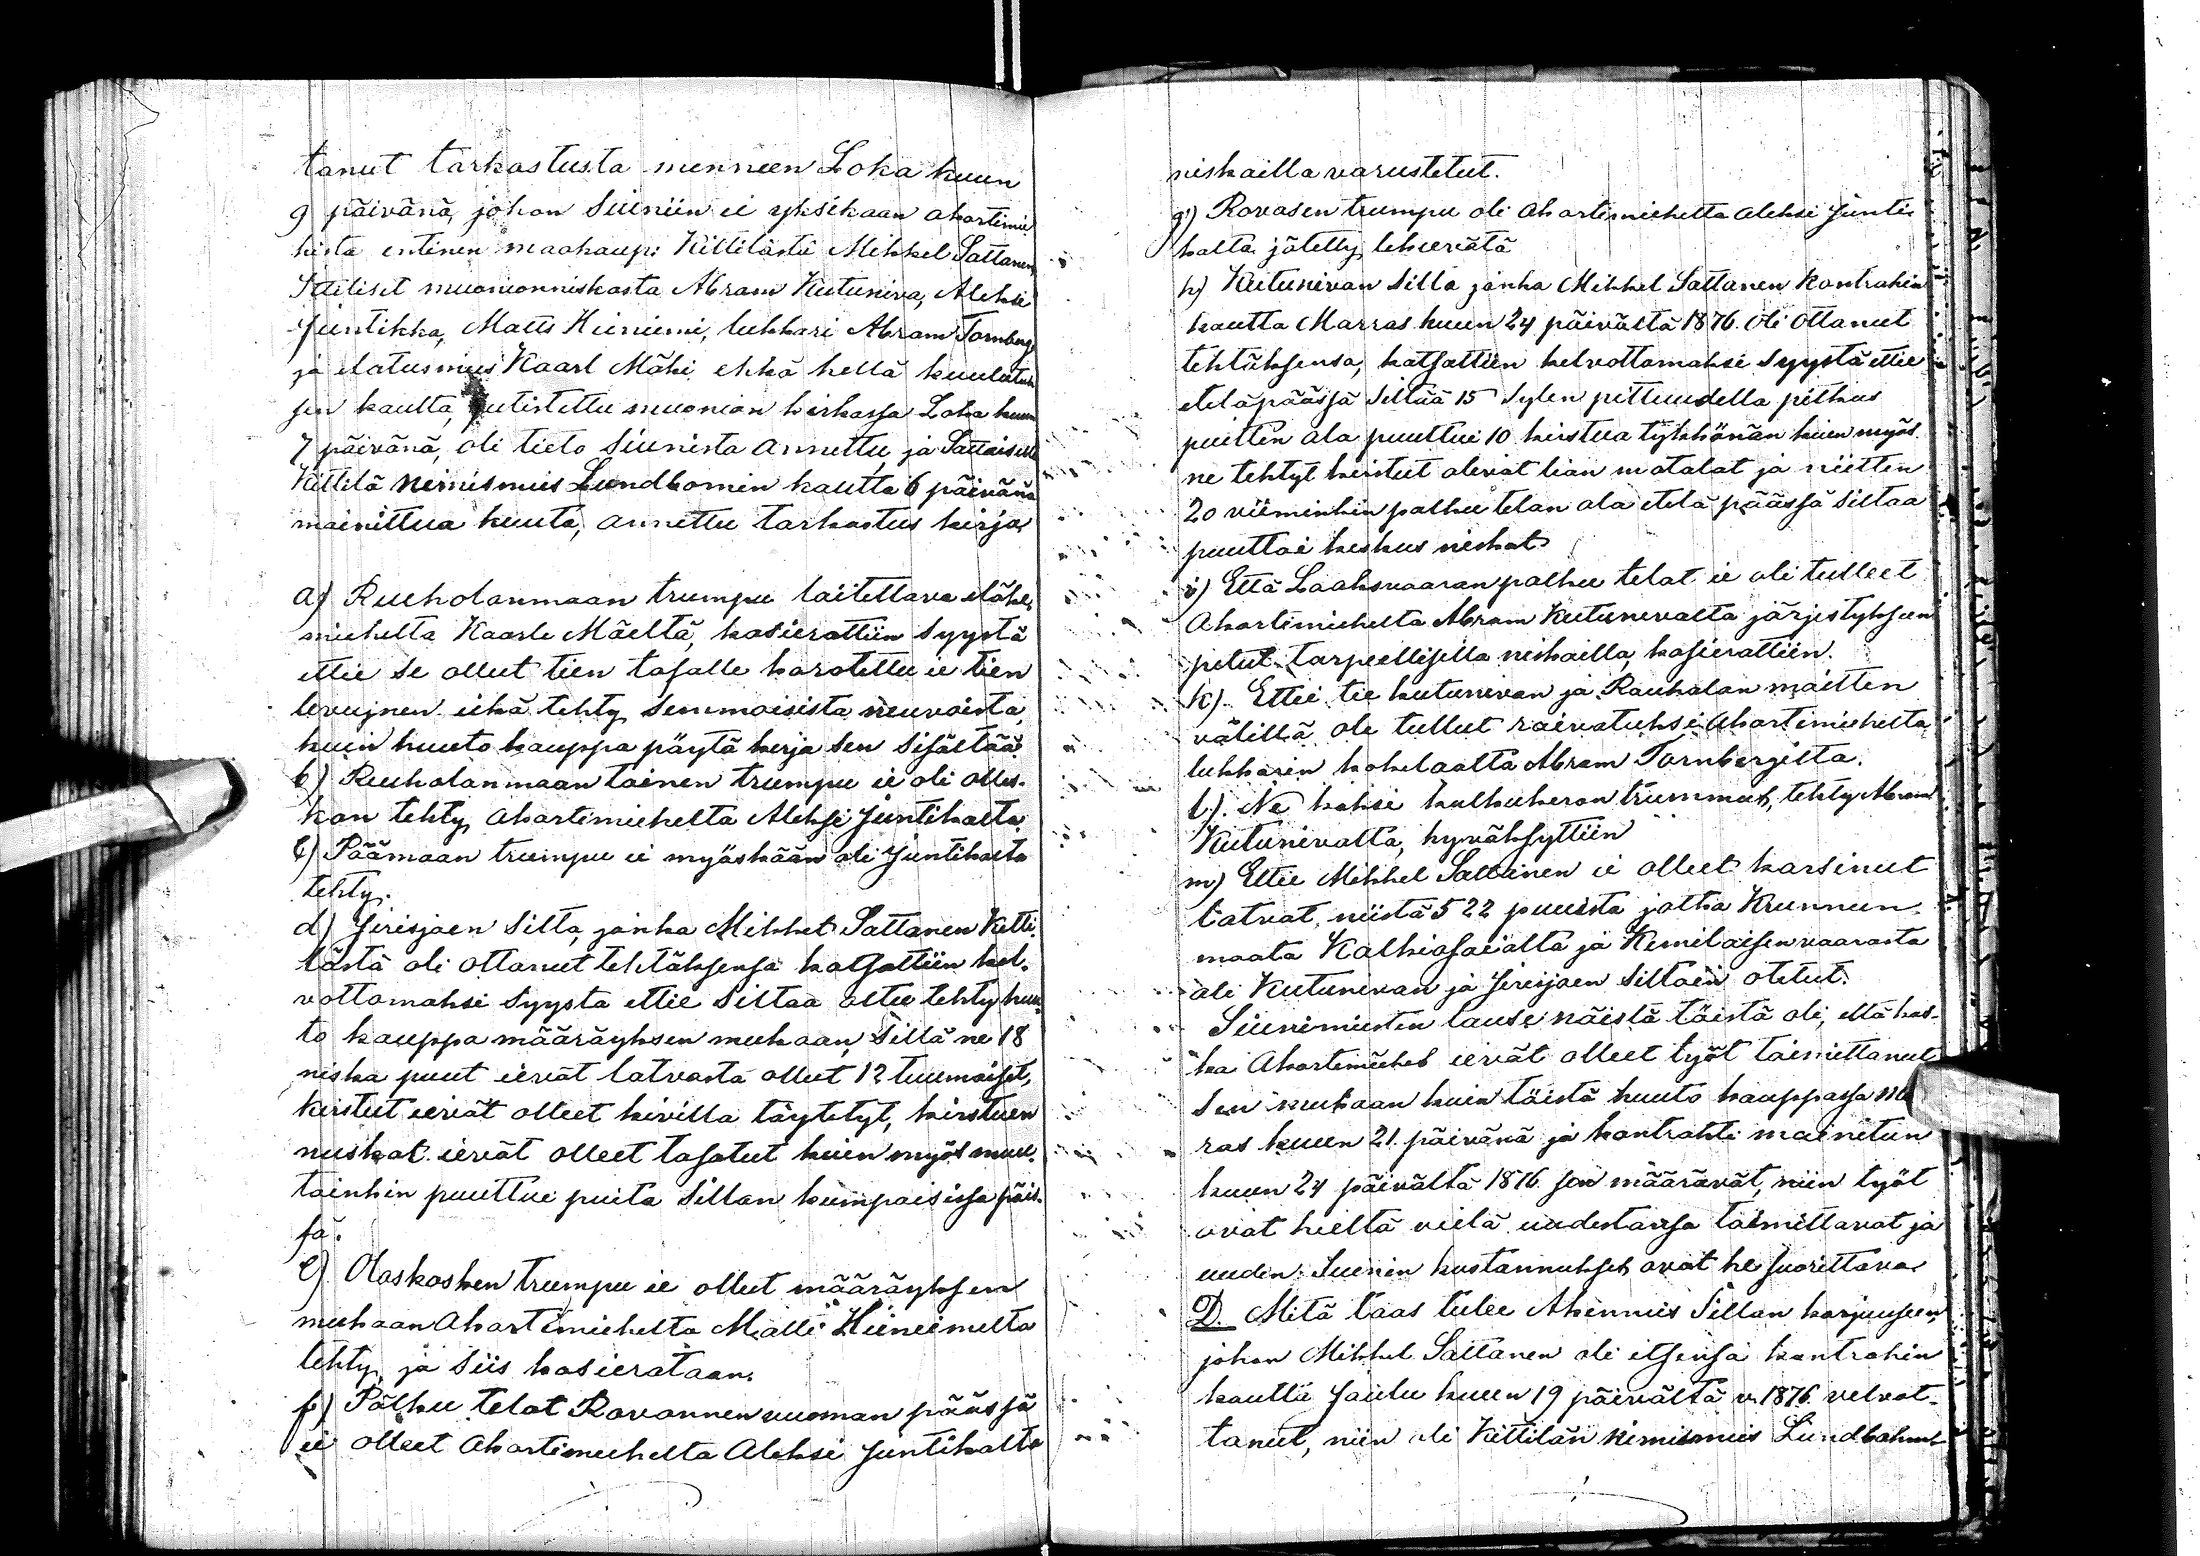 tanut tarkastusta menneen Loka kuun
9 päivänä, johon Siiniin ei yksikään akortimie
histä entinen maakaup: Kittilästä Mikkel Sattanen
Itelliset muonionniskasta Abram Kutuniva, Aleksi
Juntikka, Matts Hieniemi, lukkari Abram Tornberg
ja elatusmies Kaarl Mäki ehkä hellä kuulutuk
sen kautta, julistettu muonion kirkassa Loka kuun
7 päivänä, oli tieto Siinista annettu, ja Sattaiselle
Kittilä nimismies Lundbomin kautta 6 päivänä
mainittua kuuta, annettu tarkastus kirja,
a) Ruuholanmaan trumpu laitettava eläke
miehelta Kaarle Mäeltä, kasierattiin syystä
ettei se ollut tien tasalle karotettu ie tien
levujnen eikä tehty semmoisista neuvoista
kuin huuto kauppa päytä kerja sen sisältää
b) Ruuholanmaan toinen trumpu ie oli ollen-
kan tehty akortimiehelta Aleksi Juntikalta
c) Päämaan trumpu ei myöskään oli Juntikalta
tehty.
d) Jirisjoen Silta, jonka Mikkel Sattanen Kitti
lästä oli ottanut tehtäksensä katsottiin kel-
vottomaksi syysta ettie siltaa oltu tehty huu-
to kauppa määräyksen mukaan, Sillä ne 18
niska puut eivät latvasta ollut 12 tuumaiset,
kirstut eivät olleet kivilla täytetyt, kirstuen
niskat eivät olleet tasatut kuin myös muu-
tainkin puuttui puita Sillan kumpaisissa päis-
sä.
e) Olaskosken trumpu ie ollut määräyksen
mukaan akortimiehelta Matti Hieneimelta
tehty, ja siis kasierataan.
f) Pälkku telat Rovannenvuoman päässä
ei olleet akortimiehelta Aleksi Juntikalta
niskailla varustetut.
g) Rovasen trumpu oli akortimiehelta Aleksi Junti-
kalta jätetty tekuevätä
h) Kutunivan Silla jonka Mikkel Sattanen kontrahin
kautta Marras kuun 24 päivältä 1876 oli ottanut
tehtäksensa, katsottiin kelvottomaksi syystä ettie
eteläpäässä Siltaa 15 Sylen pittuudella pitkus
puitten ala puuttui 10 kirstua tykkönän kuin myös
ne tehtyt kirstut olevat lian matalat ja niitten
20 viiminkin palkku telan ala etelä päässä Siltaa
puuttoi keskus niskat
i) Että Laaksvaaran palkku telat ie oli tulleet
Akortimiehelta Abram Kutunevalta järjestyksen
petut tarpeellisella niskailla, kasierattiin.
k). Ettei tie kutunivan ja Rauhalan maitten
välillä ole tullut raivatuksi akortimiehelta
lukkarin kokelaalta Abram Tornbergilta.
l). Ne kaksi kulkukeron trummut, tehty Abram
Kutunivalta, hyväksyttiin
m) Ettie Mikkel Sattainen ie olleet karsinut
latvat niistä 522 puuista jotka Krunnun
maata Kalkiosaialta ja Kemilaisenvaarasta
oli Kutunivan ja Jirisjoen Siltain otetut.
Siinimiesten lause näistä töistä oli, että kos-
ka Akortimiehet eivät olleet työt toimittanut
sen mukaan kuin töistä huuto kauppassa Mar
ras kuun 21 päivänä ja kontrahti mainitun
kuun 24 päivältä 1876 sen määrävät, niin työt
ovat heiltä vielä uudestansa toimittavat ja
uuden Siinin kustannukset ovat he suorittava
D. Mitä taas tulee Akennus Sillan korjuuseen,
johon Mikkel Sattanen oli itsensä kontrahin
kautta Joulu kuun 19 päivältä v. 1876 velvot-
tanut, niin oli Kittilän nimismies Lundbohm